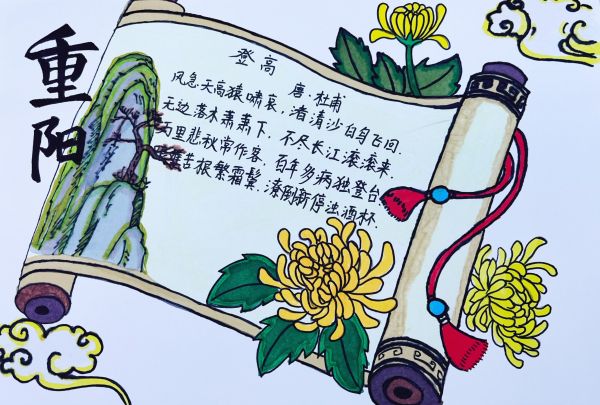 重阳
登高
唐·杜甫
风急天高猿啸哀,渚清沙白鸟飞回.
无边落木萧萧下,不尽长江滚滚来.
万里悲秋常作客,百年多病独登台.
难苦恨繁霜鬓,潦倒新停浊酒杯.